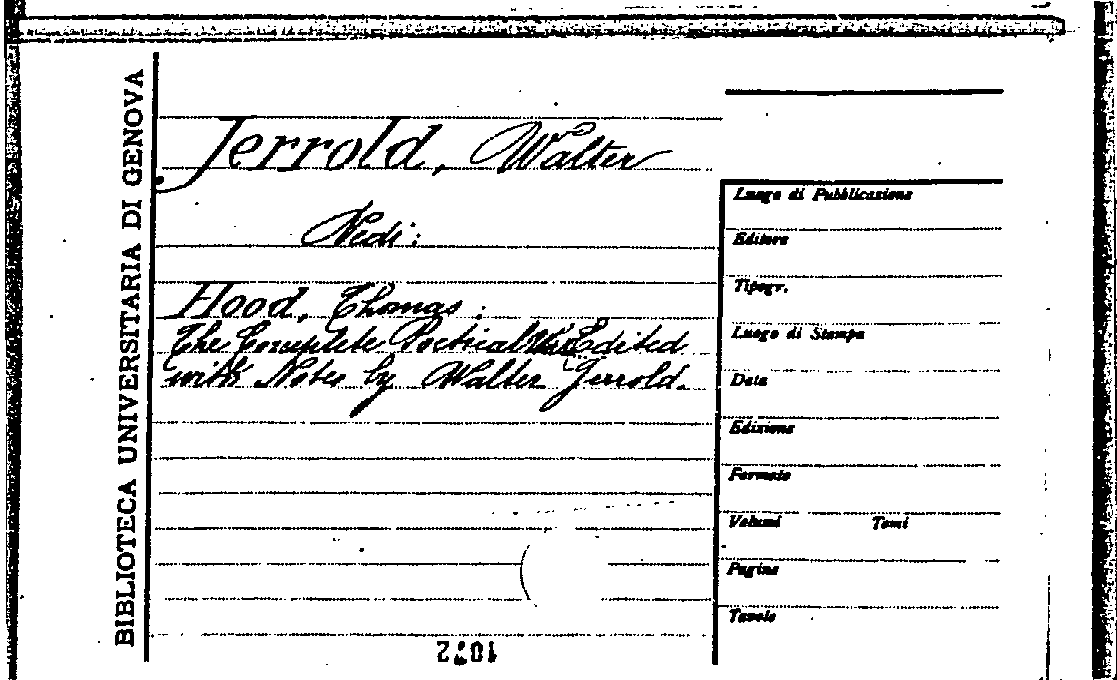 BIBLIOTECA UNIVERSITARIA DI GENOVA
Jerrold, Walter
Vedi:
Hood, Thomas:
The Complete Poetical Edited
with Notes by Walter Jerrold.
Luogo di Pubblicazione
Editore
Tipogr.
Luogo di Stampa
Data
Edizione
Formato
Volumi Tomi
Pagine
Tavole
1072